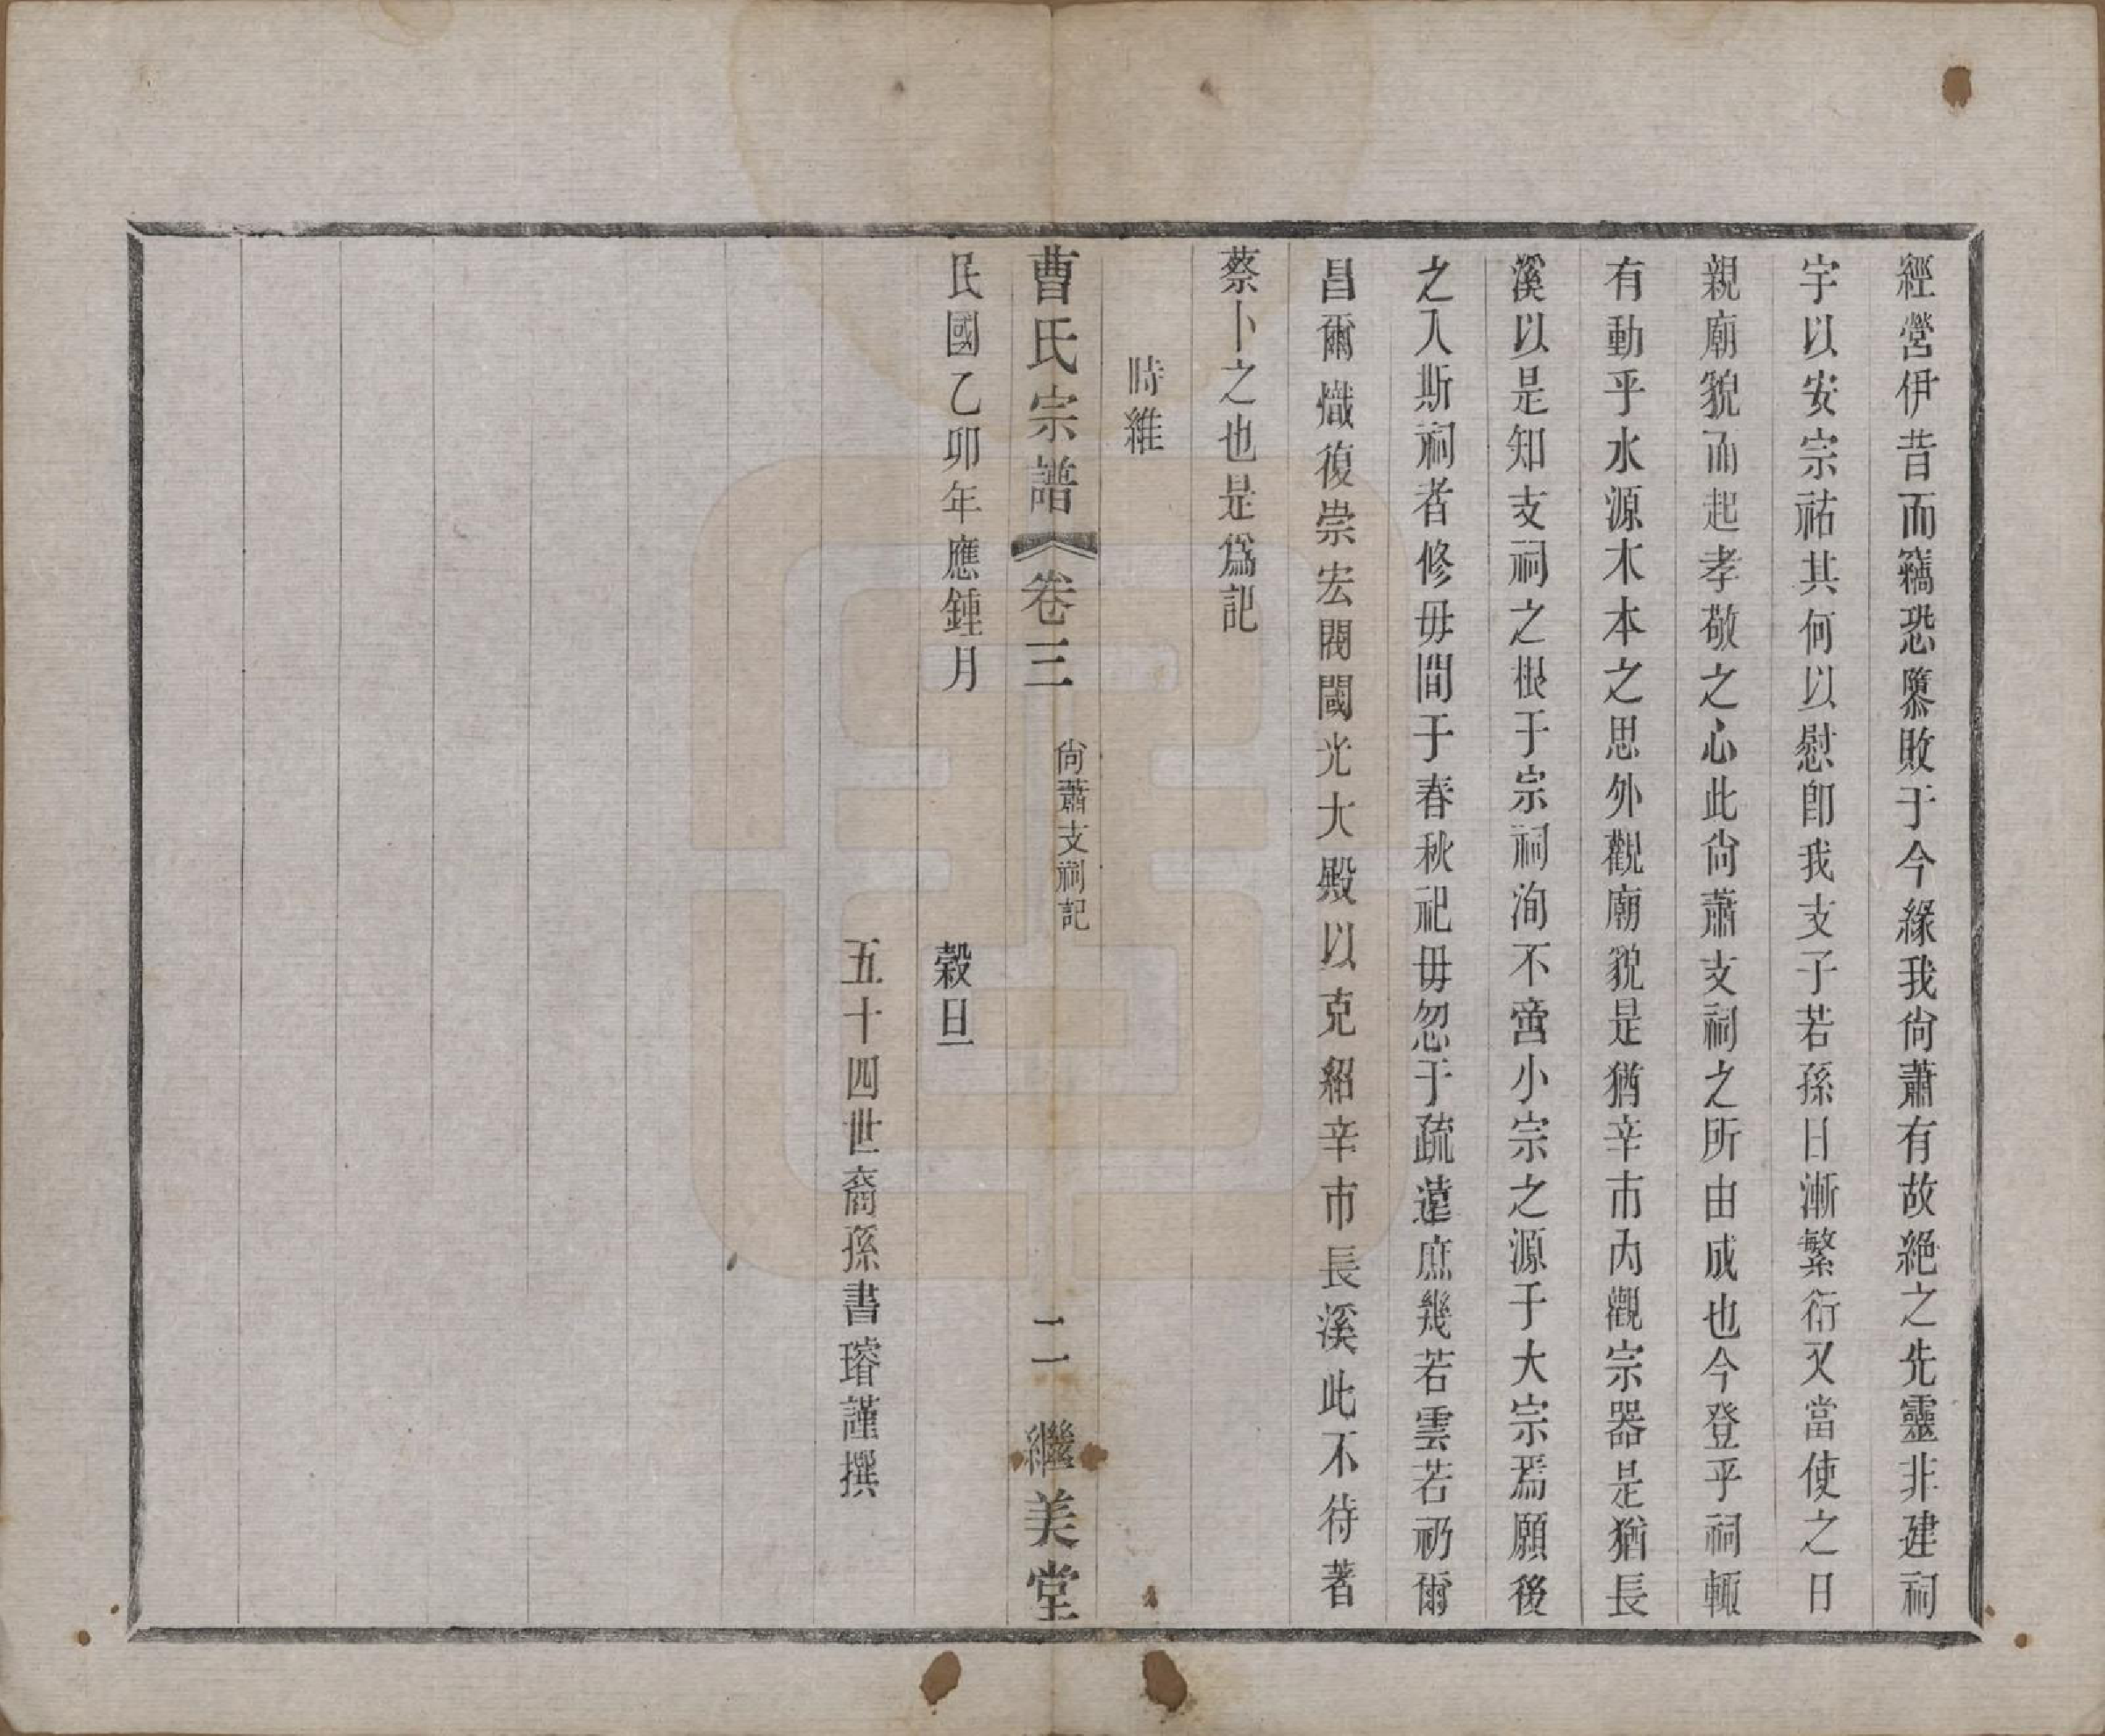 經營伊昔而竊恐隳敗于今緣我尙蕭有故絶之先靈非建祠
宇以安宗祐其何以慰卽我支子若孫日漸繁衍又當使之日
親廟貌而起孝敬之心此尙蕭支祠之所由成也今登乎祠輒
有動乎水源木本之思外觀廟貌是猶辛市內觀宗器是猶長
溪以是知支祠之根于宗祠洵不啻小宗之源于大宗焉願後
之入斯祠者修毋間于春秋祀毋忽于疏遠庶幾若雲若礽爾
昌爾熾復崇宏閥閾光大殿以克紹辛市長溪此不待著
蔡卜之也是爲記
時維
曹氏宗譜 卷三 尙蕭支祠記 二 繼美堂
民國乙卯年應鍾月 榖旦
五十四世裔孫書璿謹撰